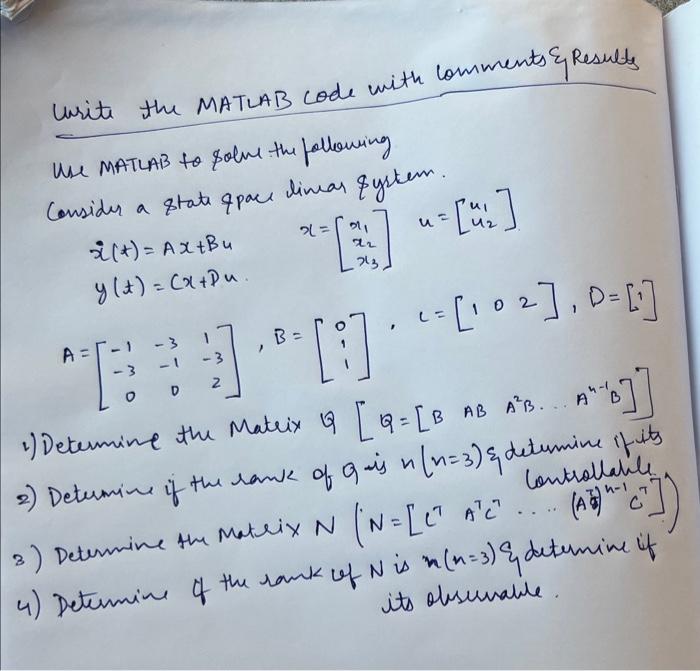 Write the MATLAB Code with Comments & Results
Use MATLAB to solve the following
Consider a state space linear system.
ẋ(t) = Ax+Bu x = [x1 x2 x3] u = [u1 u2]
y(t) = Cx+Du.
A = [-1 -3 1 -3 -1 -3 0 0 2], B = [0 1 1], C = [1 0 2], D = [1]
1) Determine the Matrix Q [Q = [B AB A²B... Aⁿ⁻¹B]]
2) Determine if the rank of Q is n (n=3) & determine if its
Controllable
3) Determine the Matrix N (N = [Cᵀ AᵀCᵀ .... (Aᵀ)ⁿ⁻¹ Cᵀ])
4) Determine if the rank of N is n (n=3) & determine if
its observable.